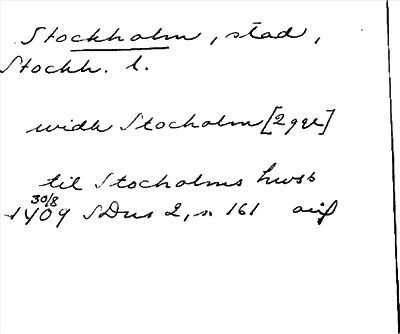 Stockholm, stad,
Stockh. l.
widh Stocholm [2 ggr]
til Stocholms hwss
30/8
1409 SDns 2, s. 161